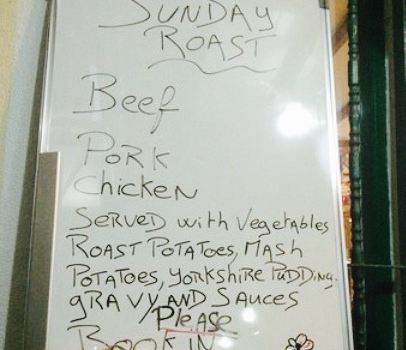 SUNDAY
ROAST
Beef
PORK
Chicken
SERVED with Vegetables
ROAST POTATOES, MASH
POTATOES, YORKSHIRE PUDDING.
GRAVY AND SAUCES
Please
BOOK IN